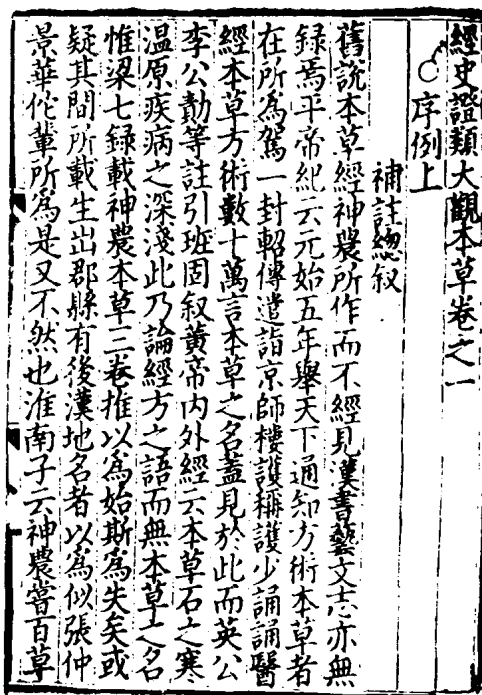 經史證類大觀本草卷之一
序例上
補註總叙
舊說本草經神農所作而不經見漢書藝文志亦無
録焉平帝紀云元始五年舉天下通知方術本草者
在所為駕一封軺傳遣詣京師樓護稱護少誦誦醫
經本草方術數十萬言本草之名蓋見於此而英公
李公勣等註引班固叙黃帝内外經云本草石之寒
温原疾病之深淺此乃論經方之語而無本草之名
惟梁七録載神農本草三卷推以為始斯為失矣或
疑其間所載生出郡縣有後漢地名者以為似張仲
景華佗輩所為是又不然也淮南子云神農嘗百草